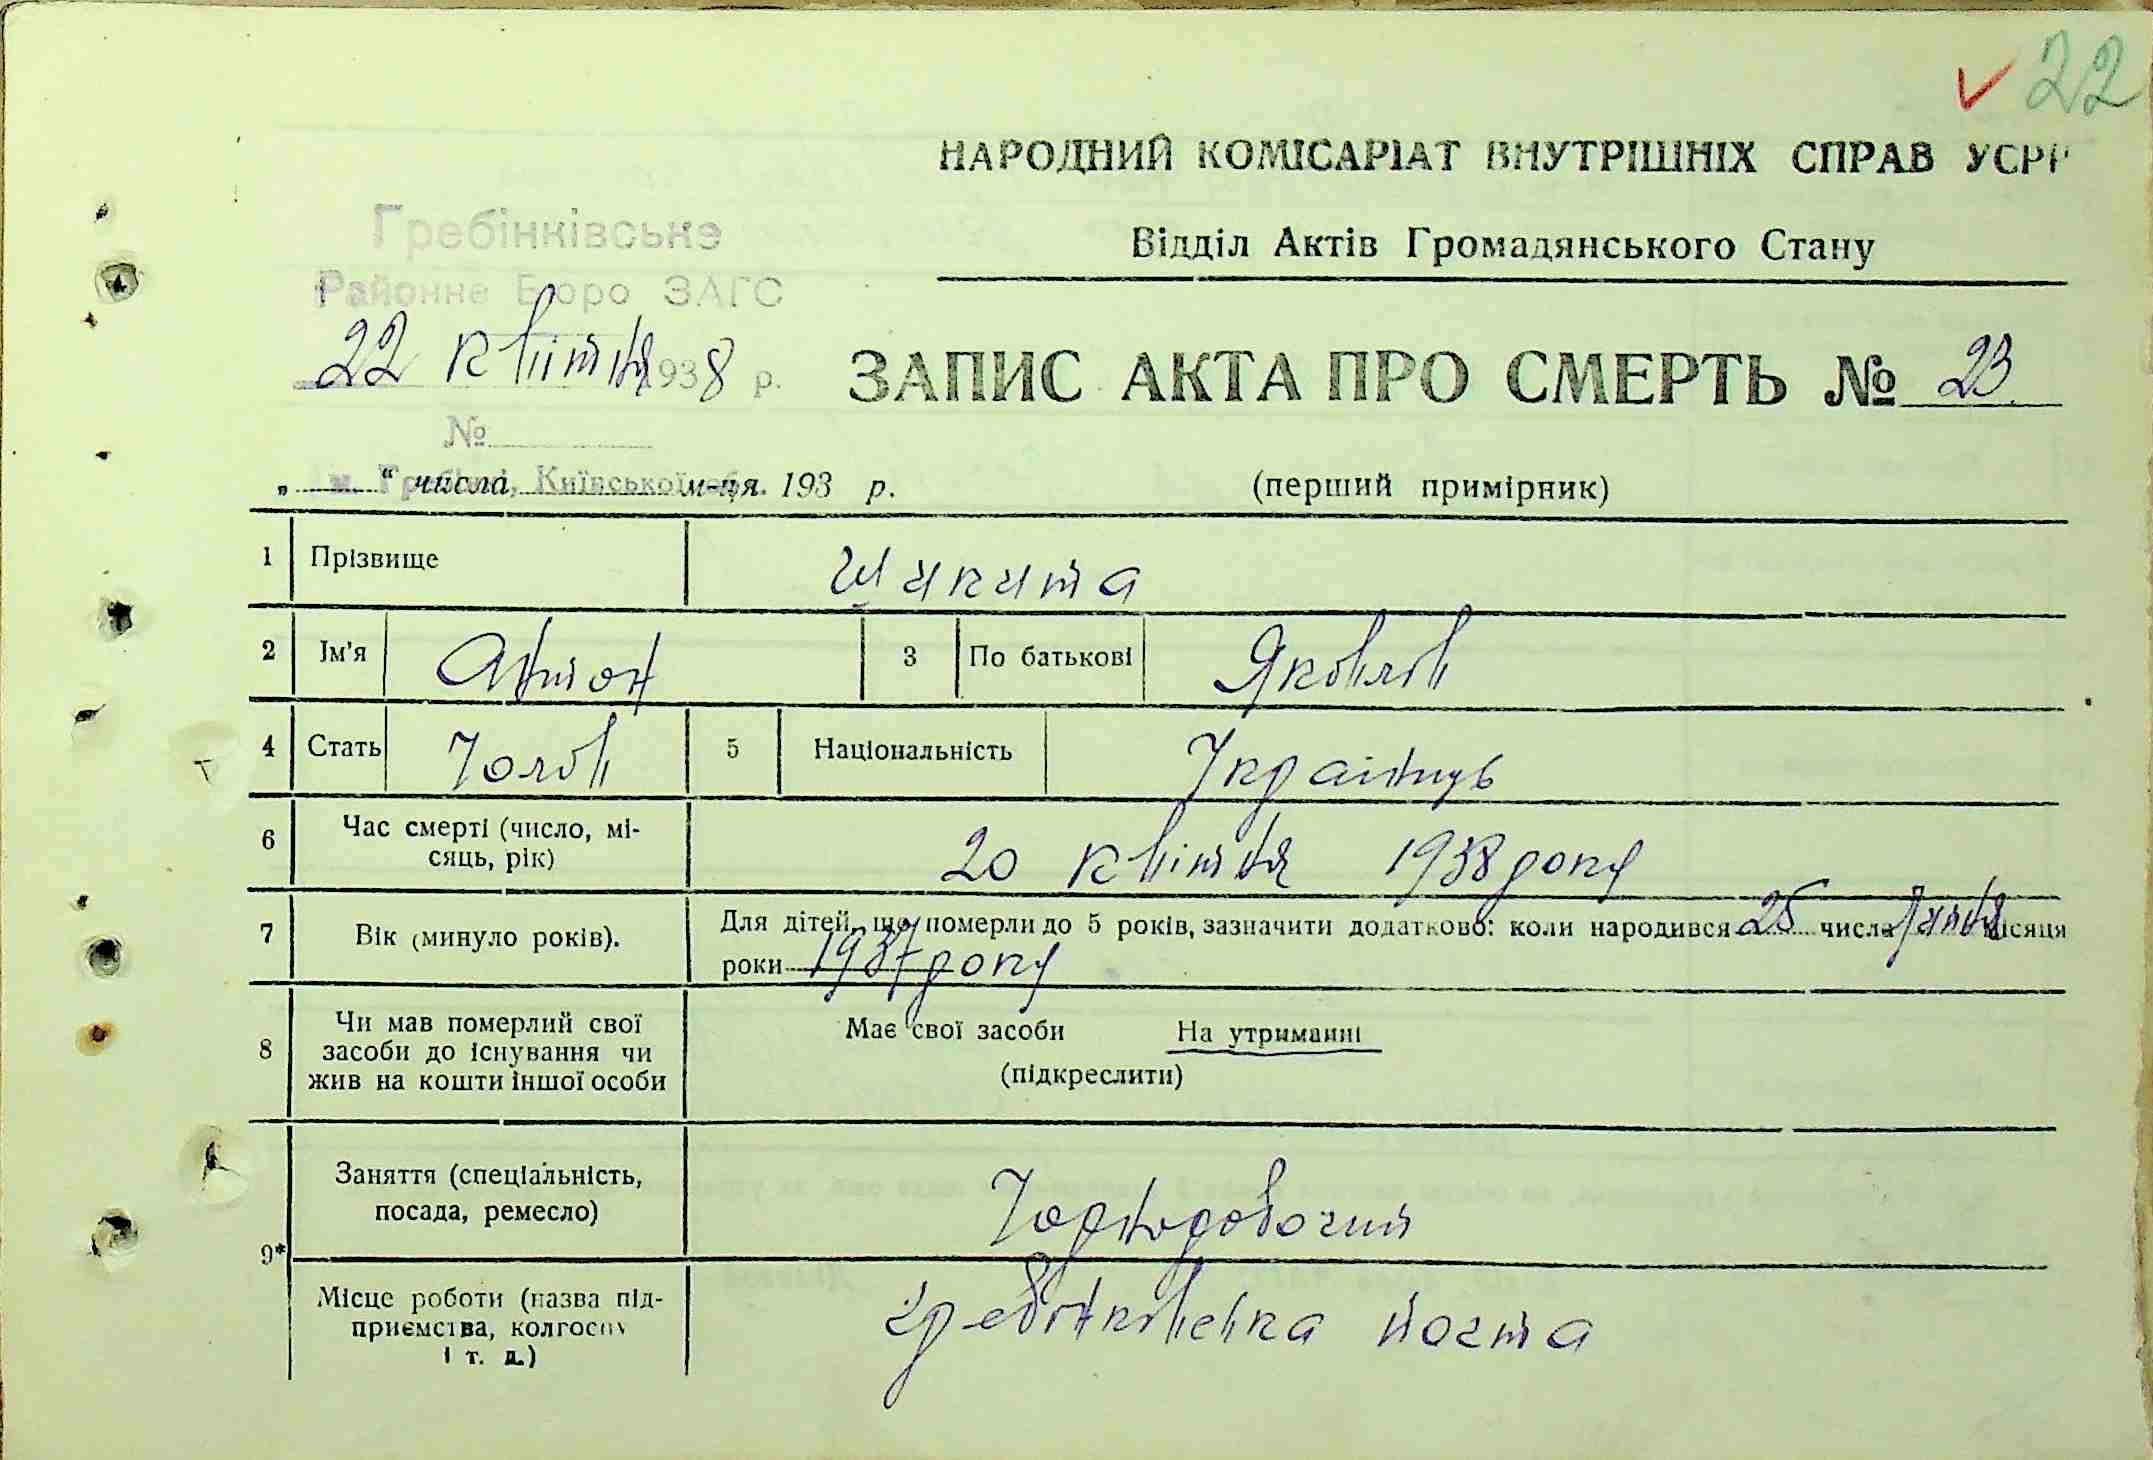 22
НАРОДНИЙ КОМІСАРІАТ ВНУТРІШНІХ СПРАВ УСРР
Відділ Актів Громадянського Стану
Гребінківське
Районне Бюро ЗАГС
22 квітня 1938 р.
№
м. Гребінки, Київської обл.
ЗАПИС АКТА ПРО СМЕРТЬ № 23
„ “ числа м-ця 193 р.
(перший примірник)
1 Прізвище Шикита
2 Ім'я Антон 3 По батькові Яковлів
4 Стать Чолов 5 Національність Українць
6 Час смерті (число, мі-
сяць, рік) 20 квітня 1938 року
7 Вік (минуло років). Для дітей, що померли до 5 років, зазначити додатково: коли народився 25 числа липня місяця
роки 1937 року
8 Чи мав померлий свої
засоби до існування чи
жив на кошти іншої особи
Має свої засоби На утриманні
(підкреслити)
9* Заняття (спеціальність,
посада, ремесло) Чорноробочий
Місце роботи (назва під-
приємства, колгоспу
і т. д.) почта